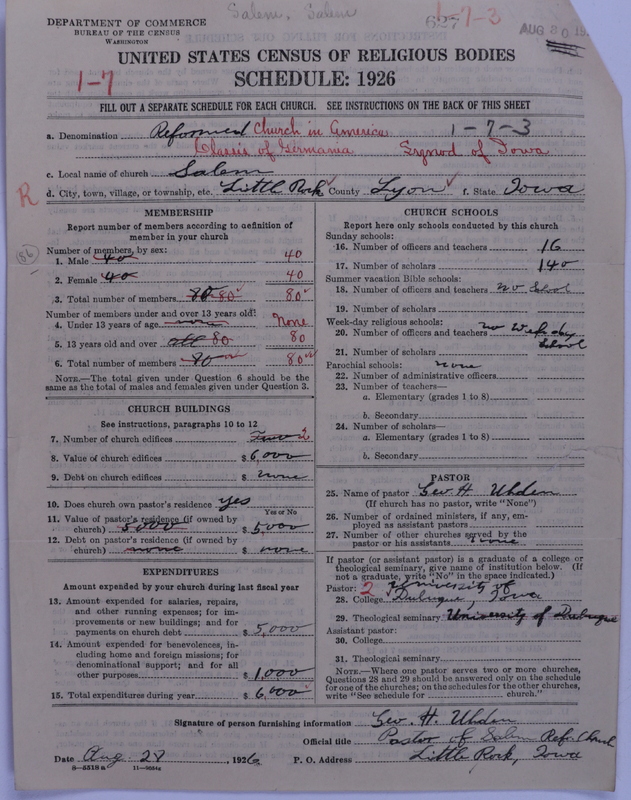 Salem, Salem
DEPARTMENT OF COMMERCE
BUREAU OF THE CENSUS
WASHINGTON
627
1-7-3
AUG 30 19
UNITED STATES CENSUS OF RELIGIOUS BODIES
SCHEDULE: 1926
1-7
FILL OUT A SEPARATE SCHEDULE FOR EACH CHURCH. SEE INSTRUCTIONS ON THE BACK OF THIS SHEET
a. Denomination Reformed Church in America 1-7-3
Classis of Germania Synod of Iowa
c. Local name of church Salem
R
d. City, town, village, or township, etc. Little Rock County Lyon f. State Iowa
MEMBERSHIP
Report number of members according to definition of
member in your church
Number of members by sex:
1. Male 40 40
2. Female 40 40
3. Total number of members 80 80 80
Number of members under and over 13 years old:
4. Under 13 years of age none None
5. 13 years old and over all 80 80
6. Total number of members 80 80
NOTE.—The total given under Question 6 should be the
same as the total of males and females given under Question 3.
CHURCH BUILDINGS
See instructions, paragraphs 10 to 12
7. Number of church edifices Two 2
8. Value of church edifices $ 6,000
9. Debt on church edifices $ none
10. Does church own pastor's residence yes
Yes or No
11. Value of pastor's residence (if owned by
church) 5000 $ 5,000
12. Debt on pastor's residence (if owned by
church) none $ none
EXPENDITURES
Amount expended by your church during last fiscal year
13. Amount expended for salaries, repairs,
and other running expenses; for im-
provements or new buildings; and for
payments on church debt $ 5,000
14. Amount expended for benevolences, in-
cluding home and foreign missions; for
denominational support; and for all
other purposes $ 1,000
15. Total expenditures during year $ 6,000
CHURCH SCHOOLS
Report here only schools conducted by this church
Sunday schools:
16. Number of officers and teachers 16
17. Number of scholars 140
Summer vacation Bible schools:
18. Number of officers and teachers no school
19. Number of scholars
Week-day religious schools:
20. Number of officers and teachers no Week day
School
21. Number of scholars
Parochial schools: none
22. Number of administrative officers
23. Number of teachers—
a. Elementary (grades 1 to 8)
b. Secondary
24. Number of scholars—
a. Elementary (grades 1 to 8)
b. Secondary
PASTOR
25. Name of pastor Geo. H. Uhden
(If church has no pastor, write "None")
26. Number of ordained ministers, if any, em-
ployed as assistant pastors
27. Number of other churches served by the
pastor or his assistants none
If pastor (or assistant pastor) is a graduate of a college or
theological seminary, give name of institution below. (If
not a graduate, write "No" in the space indicated.)
Pastor: 2 University of
28. College Dubuque, Iowa
29. Theological seminary University of Dubuque
Assistant pastor:
30. College
31. Theological seminary
NOTE.—Where one pastor serves two or more churches,
Questions 28 and 29 should be answered only on the schedule
for one of the churches; on the schedules for the other churches,
write "See schedule for church."
Signature of person furnishing information Geo. H. Uhden
Official title Pastor of Salem Ref. Church
Date Aug 28, 1926 P. O. Address Little Rock, Iowa
8—5518a 11—3054